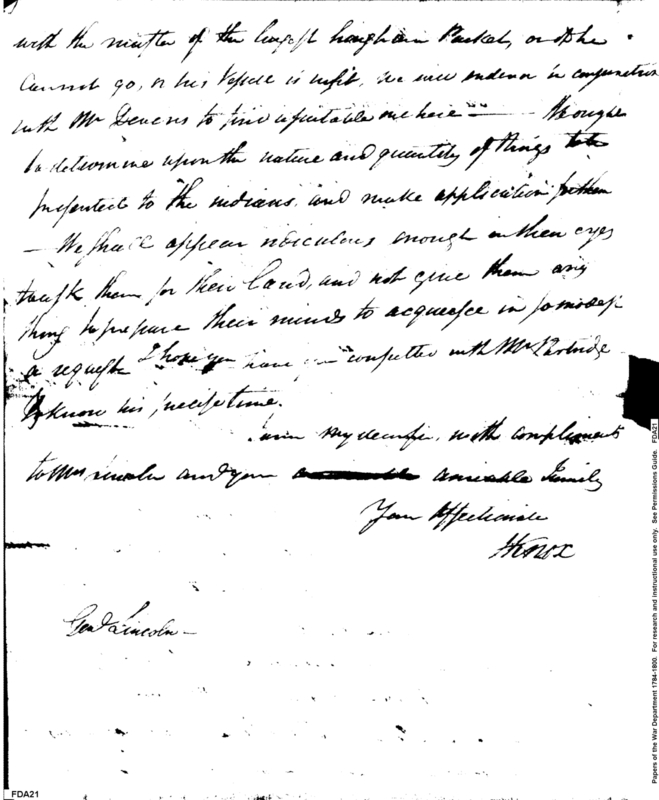 with the master of the largest hingham Packet, or if he
Cannot go, or his Vessel is unfit, we will endevor in conjunction
with Mr Devens to find a suitable one here — We ought
to determine upon the nature and quantity of things to be
presented to the indians, and make application for them
— We shall appear ridiculous enough in their eyes
to ask them for their land, and not give them any
thing to prepare their minds to acquiesce in so modest
a request I hope you have consulted with Mr Partridge
to know his precise time.
I am my dear sir, with compliments
to Mrs Lincoln and your amiable family
Your Affectionate
HKnox
Genl Lincoln —
FDA21
Papers of the War Department 1784-1800. For research and instructional use only. See Permissions Guide. FDA21